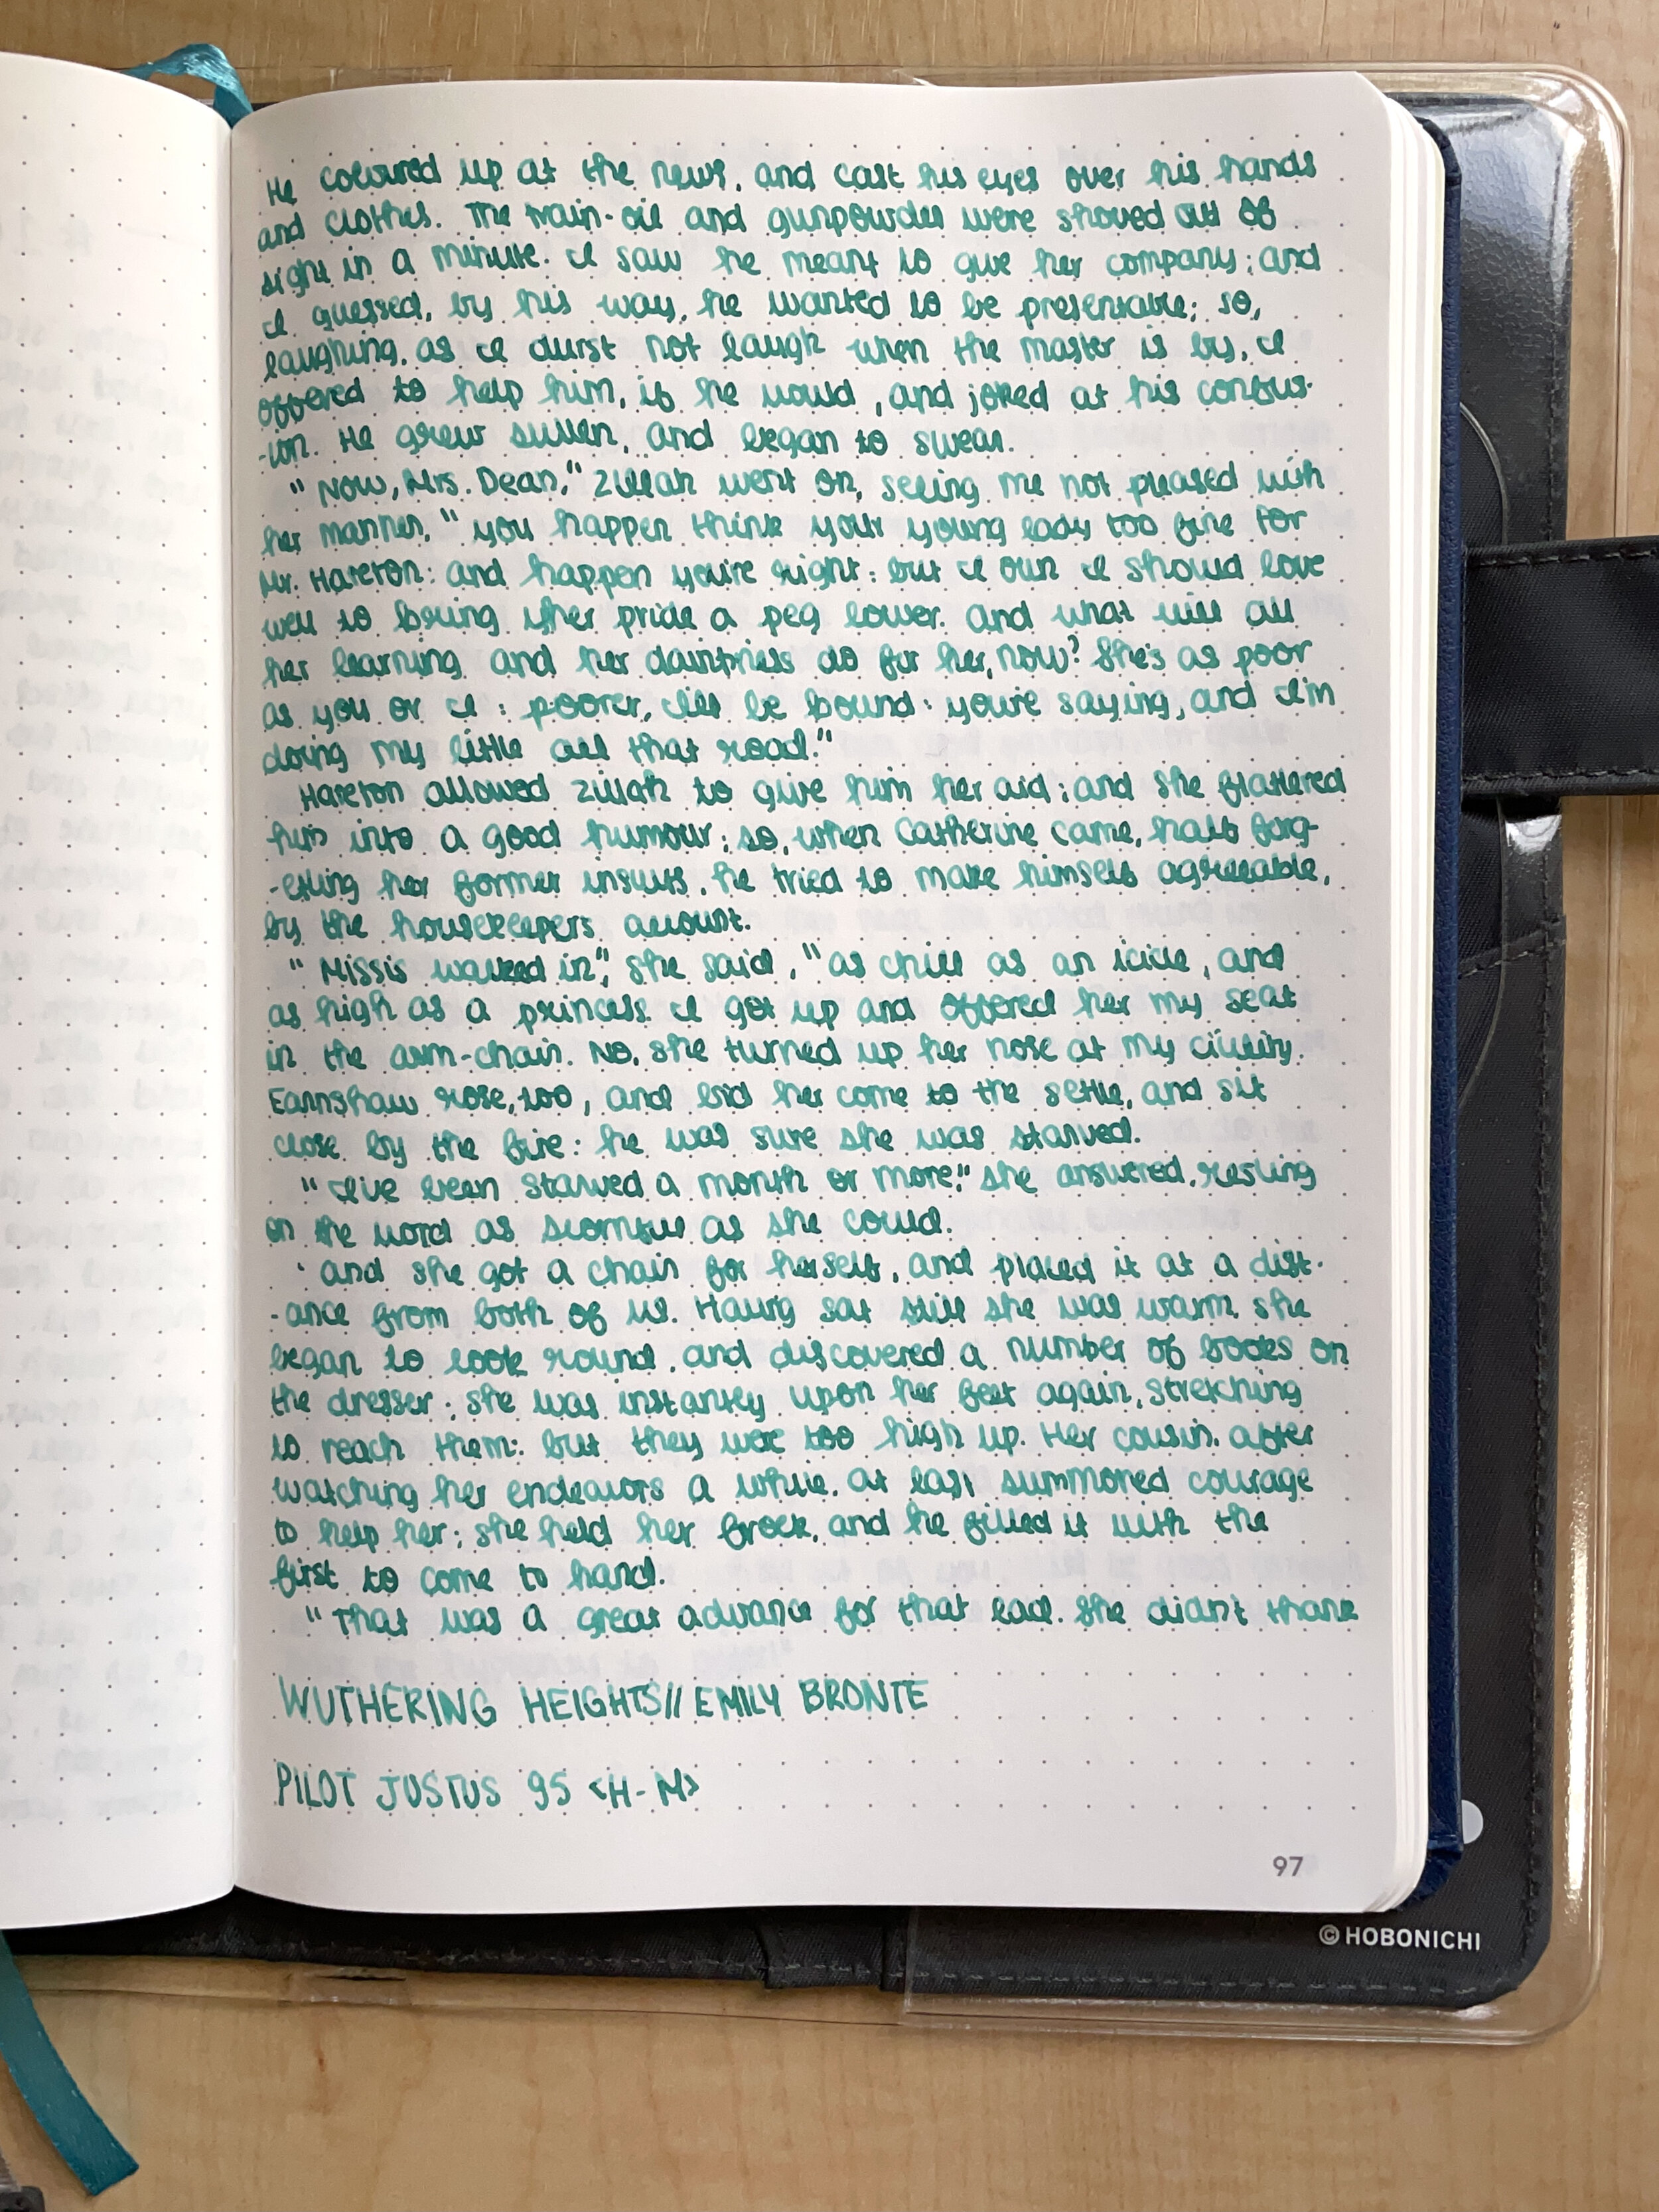 He coloured up at the news, and cast his eyes over his hands
and clothes. The train-oil and gunpowder were shoved out of
sight in a minute. I saw he meant to give her company; and
I guessed, by his way, he wanted to be presentable; so,
laughing, as I durst not laugh when the master is by, I
offered to help him, if he would, and joked at his confus-
-ion. He grew sullen, and began to swear.
"Now, Mrs. Dean," Zillah went on, seeing me not pleased with
her manner, "you happen think your young lady too fine for
Mr. Hareton: and happen you're right: but I own I should love
well to bring her pride a peg lower. And what will all
her learning and her daintiness do for her, now? She's as poor
as you or I: poorer, I'll be bound: you're saying, and I'm
doing my little all that road."
Hareton allowed Zillah to give him her aid; and she flattered
him into a good humour; so, when Catherine came, half forg-
-etting her former insults, he tried to make himself agreeable,
by the housekeepers account.
"Missis walked in", she said, "as chill as an icicle, and
as high as a princess. I got up and offered her my seat
in the arm-chair. No, she turned up her nose at my civility.
Earnshaw rose, too, and bid her come to the settle, and sit
close by the fire: he was sure she was starved.
"I've been starved a month or more," she answered, resting
on the word as scornful as she could.
'and she got a chair for herself, and placed it at a dist-
-ance from both of us. Having sat till she was warm, she
began to look round, and discovered a number of books on
the dresser; she was instantly upon her feet again, stretching
to reach them: but they were too high up. Her cousin, after
watching her endeavors a while, at last summoned courage
to help her; she held her frock, and he filled it with the
first to come to hand.
"That was a great advance for that lad. She didn't thank
WUTHERING HEIGHTS // EMILY BRONTE
PILOT JUSTUS 95 <H-M>
97
© HOBONICHI